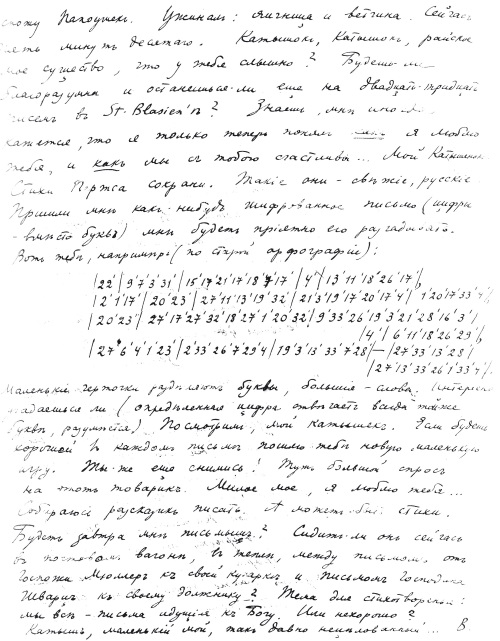 схожу Папоушек. Ужинал: яичница и ветчина. Сейчас
минут десятаго. Катышок, Катышок, райское
мое существо, что у тебя слышно? Будешь-ли
благоразумна и останешься-ли еще на двадцать-тридцать
в St. Blasien'ѣ? Знаешь, мнѣ иногда
кажется, что я только теперь понял я люблю
тебя, и как мы с тобою счастливы... Мой Катышонок
Стихи сохрани. Такіе они - свѣжіе, русскіе
Пришли мнѣ как-нибудь шифрованное письмо (цифры
вмѣсто букв) мнѣ будет пріятно его разгадывать.
Вот тебѣ, напримѣр (по старой орфографіи):
|22'|9'7'3'31'|15'17'21'17'18'7'17'|4'|13'11'18'26'17'|
|2'1'17'|20'23'|27'11'13'19'32'|21'3'19'17'20'17'4'| 1'20'17'33'4'|
|20'23'| 27'17'27'32'18'27'1'20'32'|9'33'26'19'3'21'28'16'3'|
|4'| 6'11'18'26'29'|
|27'6'4'1'23'|2'33'26'7'29'4|19'3'13'33'7'28'|—|27'33'13'28'|
|27'13'33'26'1'33'4'|
Маленькія черточки раздѣляют буквы, большія - слова. Интересно
угадаешься ли (опредѣленная цифра отвѣчает всегда той же
буквѣ, разумѣется) Посмотрим, мой катышек. Если будешь
хорошей в каждом письмѣ пошлю тебѣ новую маленькую
игру. Ты же еще снились! Тут большой спрос
на этот товарик. Милое мое, я люблю тебя...
Собираюсь разсказик писать. А может быть стихи.
Будет завтра мнѣ письмыш? Сидит ли он сейчас
в почтовом вагонѣ, в теплѣ, между письмом от
Госпожи Мюллер к своей кухаркѣ и письмом Господина
Шварц к своему должнику? Тема для стихотворенія:
мы всѣ - письма идущія к Богу. Или нехорошо?
Катыш, маленькій мой, так давно нецѣлованный... В.